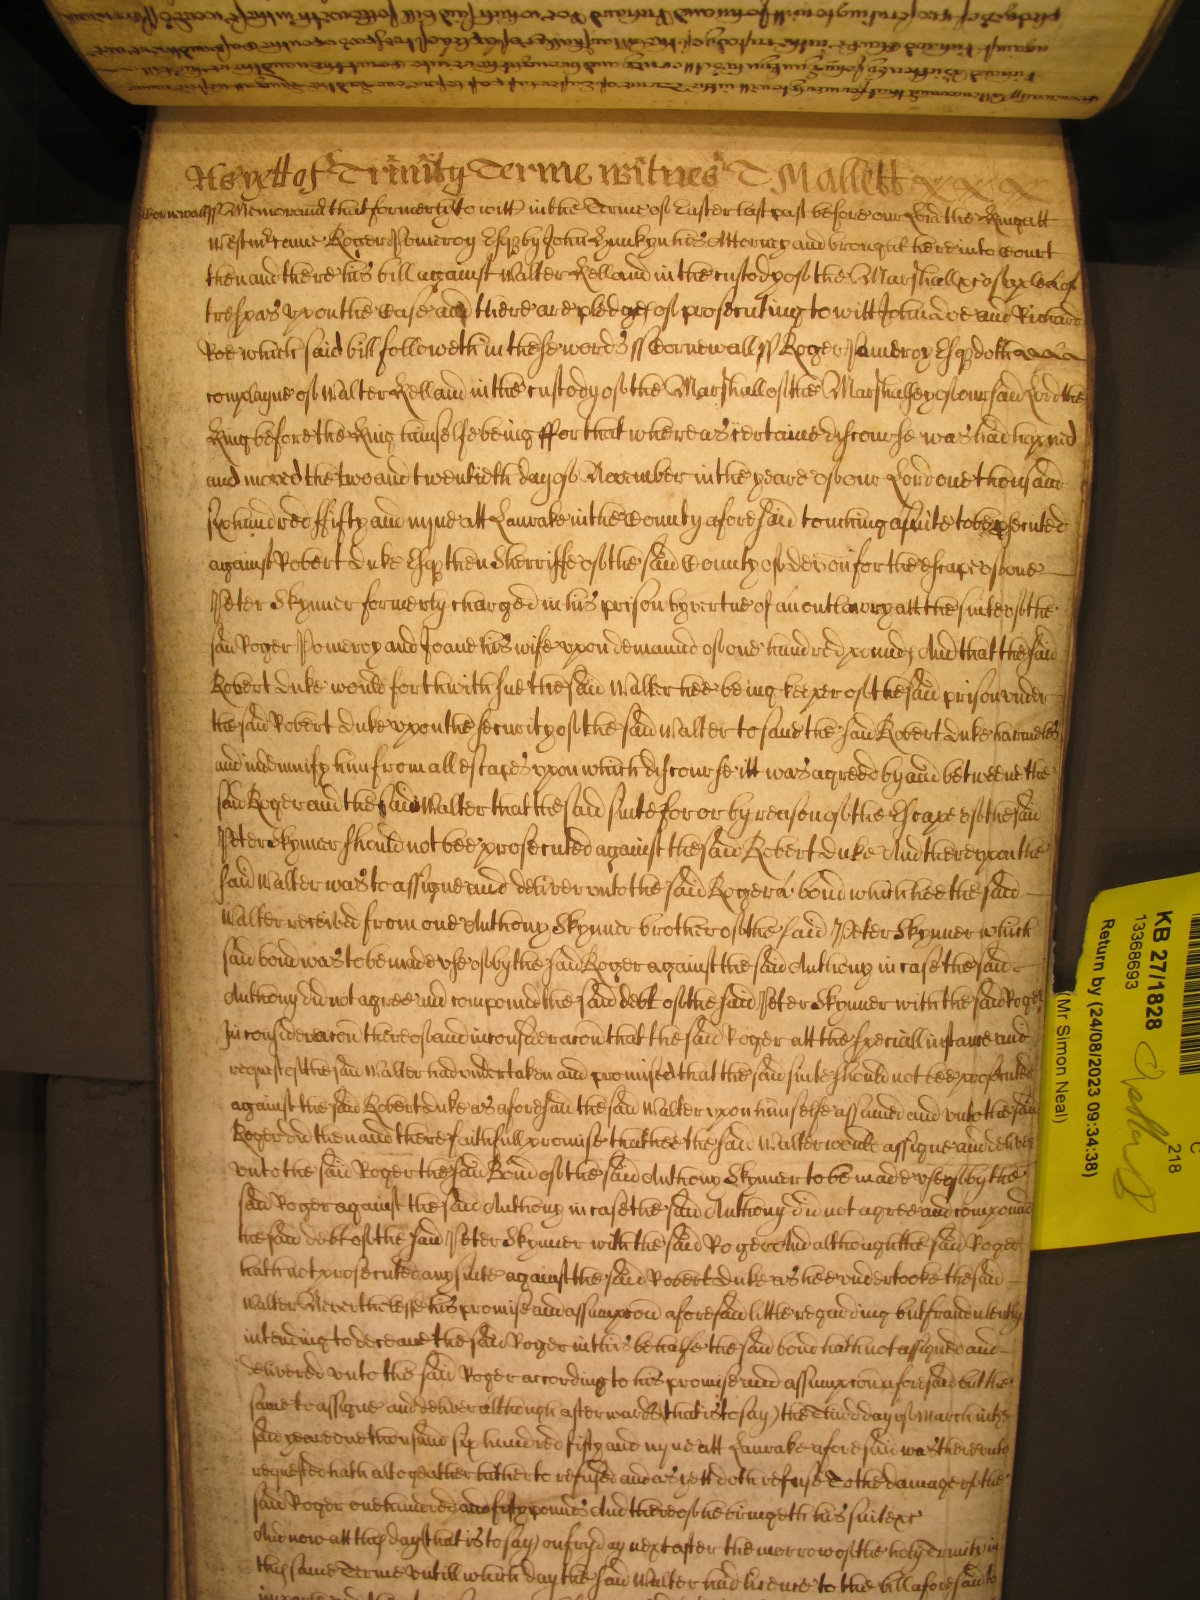 As yett of Trinity Terme witnes T Mallett
Cornewall ss Memorand that formerly to witt in the Terme of Easter last past before our Lord the King att
Westmr came Roger Pomeroy Esqr by John Hunkyn his Attorney and brought here into Court
then and there his bill against Walter Kelland in the custody of the Marshall &c of a plea of
trespas upon the Case and there are pledges of prosecuting to witt John Doe and Richard
Roe which said bill followeth in these words ss Cornewall ss Roger Pomeroy Esqr doth
complayne of Walter Kelland in the custody of the Marshall of the Marshalsey of our said Lord the
King before the King himselfe being ffor that whereas certaine discourse was had
and moved the two and twentieth day of November in the yeare of our Lord one thousand
six hundred ffifty and nyne att Lanrake in the County aforesaid touching a suite to be psecuted
against Robert Duke Esqr then Sherriffe of the said County of devon for the escape of one
Peter Skynner formerly charged in his prison by vertue of an outlawry att the suite of the
said Roger Pomeroy and Joane his wife upon demaund of one hundred pounds And that the said
Robert Duke would forthwith sue the said Walter hee being keeper of the said prison under
the said Robert Duke upon the security of the said Walter to save the said Robert Duke harmeles
and indemnify him from all escapes upon which discourse itt was agreed by and betweene the
said Roger and the said Walter that the said suite for or by reason of the Escape of the said
Peter Skynner should not bee prosecuted against the said Robert Duke And thereupon the
said Walter was to assigne and deliver unto the said Roger a bond which hee the said
Walter received from one Anthony Skynner brother of the said Peter Skynner which
said bond was to be made use of by the said Roger against the said Anthony in case the said
Anthony did not agree and compound the said debt of the said Peter Skynner with the said Roger
In consideracon thereof and in consideracon that the said Roger att the speciall instance and
request of the said Walter had undertaken and promised that the said suite should not bee prosecuted
against the said Robert Duke as aforesaid the said Walter upon himselfe assumed and unto the said
Roger did then and there faithfull promise that hee the said Walter would assigne and deliver
unto the said Roger the said Bond of the said Anthony Skynner to be made use of by the
said Roger against the said Anthony in case the said Anthony did not agree and compound
the said debt of the said Peter Skynner with the said Roger And although the said Roger
hath not prosecuted any suite against the said Robert Duke as hee undertooke the said
Walter Neverthelesse his promise and assumpcon aforesaid little regarding but fraudulently
intending to deceave the said Roger in this behalfe the said bond hath not assigned and
delivered unto the said Roger according to his promise and assumpcon aforesaid but the
same to assigne and deliver although afterwards (that is to say) the Third day of March in the
said yeare one thousand six hundred fifty and nyne att Lanrake aforesaid was thereunto
requested hath altogeather hitherto refused and as yett doth refuse To the damage of the
said Roger one hundred and fifty pounds And thereof he bringeth his suite &c
And now att this day (that is to say) on fryday next after the morrow of the holy Trinity in
this same Terme untill which day the said Walter had licence to the bill aforesaid to
KB 27/1828
13368693
Return by (24/08/2023 09:34:38)
(Mr Simon Neal)
C
218